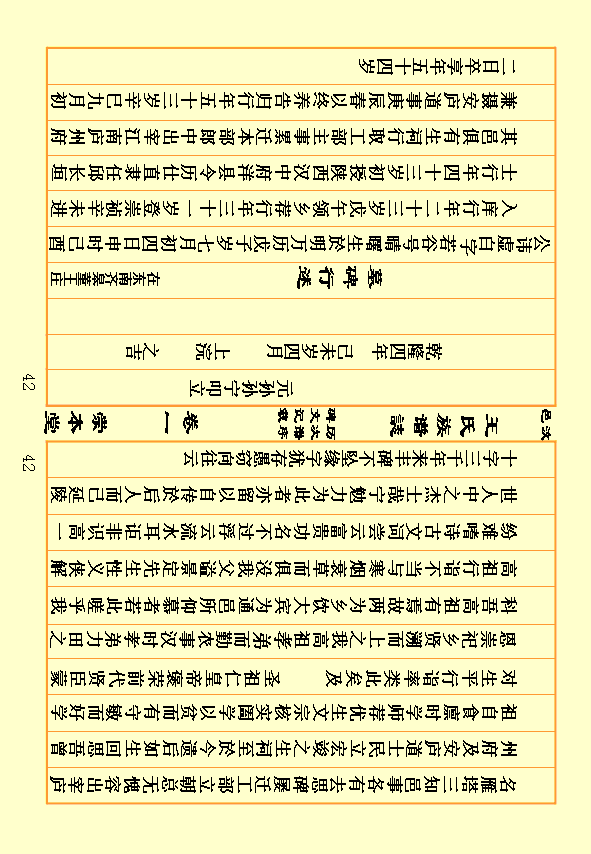 名雁塔三知邑事各有去思碑屡迁工部立朝总无愧容出宰庐
州府及安庐道士民立宏竣宗之生祠至於今遗后如生回思吾曾
祖自食廪时学师荐优生文宗核实学國学以贫而有守敏而好学
对生平行谐率类此矣及 圣祖仁皇帝褒荣前代贤臣蒙
恩崇祀乡贤而溯之上我之高祖孝弟而勤衣事汉时孝弟力田之
科吾高祖有焉故两为乡饮大宾为通邑所仰慕者若此嗟乎我
高祖行谐不当与寒烟衰草俱而没我父溢景定先生性义侠解
纷难嗜诗古文词尝云富贵功名不过浮云流水耳讵非识高一
世人中之杰士哉宁勉力为此者亦留以自传於后人而已延陵
十字三千年来丰碑不坠缘字犹存愚窃向往云
42
邑次 王氏族谱誌 历次谱序 碑文记载 卷一 崇本堂
元孙孙宁叩立
乾隆四年 己未岁四月 上浣 之吉
墓碑行述 在东南齐暮董王庄
公讳虚白字若谷号晴曜生於明万历戊子岁七月初四日申时己酉
入庠行年二十二岁戊午领乡荐行年三十一岁登崇祯辛未进
士行年四十四岁初授陕西汉中府洋县令历仕直隶任邱长垣
其邑俱有生祠行取工部主事累迁本部郎中出宰江南庐州府
兼摄安庐道事庚辰春以终养告归行年五十三岁辛巳九月初
二日卒享年五十四岁
42